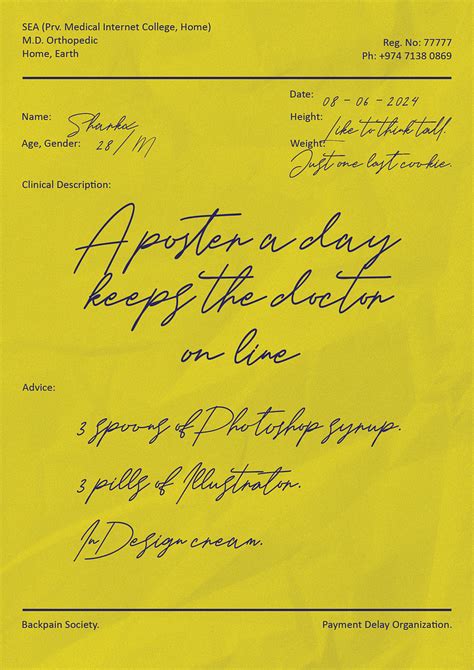 SEA (Prv. Medical Internet College, Home)
M.D. Orthopedic
Home, Earth
Reg. No: 77777
Ph: +974 7138 0869
Date: 08 - 06 - 2024
Name: Sharka
Height: Like to think tall.
Age, Gender: 28 / M
Weight: Just one last cookie.
Clinical Description:
A poster a day
keeps the doctor
on line
Advice:
3 spoons of Photoshop syrup.
3 pills of Illustrator.
InDesign cream.
Backpain Society.
Payment Delay Organization.